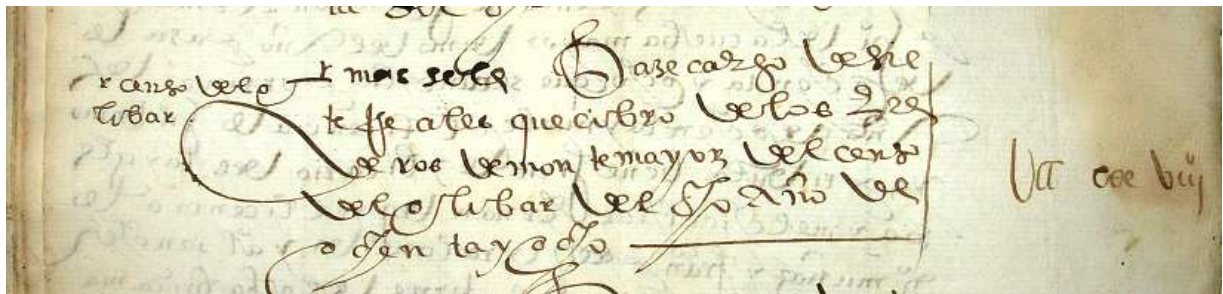 r censo del o
libar
r mas se le haze cargo de sie
te Reales que cobro de los here
deros de montemayor del censo
del oslibar del dho Año de
ochenta y ocho